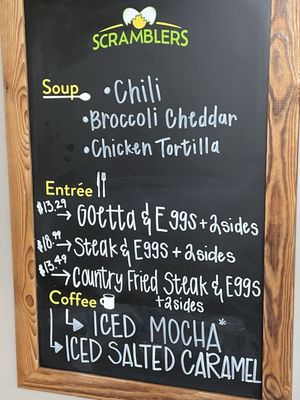 SCRAMBLERS
Soup
• Chili
• Broccoli Cheddar
• Chicken Tortilla
Entrée
$13.29 → Goetta & Eggs + 2 sides
$18.99 → Steak & Eggs + 2 sides
$13.49 → Country Fried Steak & Eggs
+ 2 sides
Coffee
↳ ICED MOCHA*
↳ ICED SALTED CARAMEL